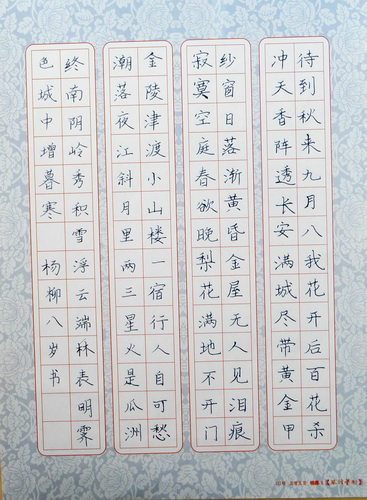 待到秋来九月八我花开后百花杀
冲天香阵透长安满城尽带黄金甲
纱窗日落渐黄昏金屋无人见泪痕
寂寞空庭春欲晚梨花满地不开门
金陵津渡小山楼一宿行人自可愁
潮落夜江斜月里两三星火是瓜洲
终南阴岭秀积雪浮云端林表明霁
色城中增暮寒 杨柳八岁书